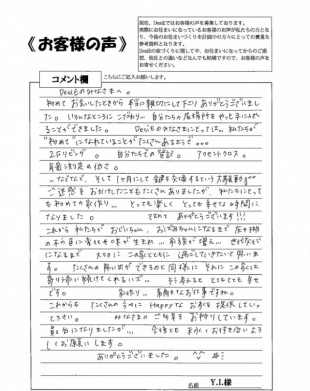 《お客様の声》
現在、DesiEではお客様の声を募集しております。
実際にお住まいになっているお客様のお声が私たちの力となり、今後のお住まいづくりを計画中の方々にとっての貴重な参考資料となります。
DesiEの家づくりに関してや、お住まいになってからのご感想、他社との違いなどなんでも結構ですので、お客様の声をお寄せください。
コメント欄
こちらにご記入お願いします。
DesiEのみなさまへ。
初めてお会いしたときから本当に親切にして下さりありがとうございました。
いろんなところにこだわり 自分たちの居場所を
ることができました。 DesiEのみなさまにとっては 私たちが
"初めて"になれていることがたくさんあるようで…
2カリビング 自分たちで アクセントクロス
などなど、そして1ヶ月にして鍵を交換するという大騒動
ご迷惑をおかけしたこともたくさんありましたが、私たちにとって
も初めての家作り… とても楽しく とても幸せな時間に
なりました。 ありがとうございます!!!
これから私たちが おじいちゃん、おばあちゃんになるまで
の木の色に変化や味が生まれ… 家族が増え…
になるまで 大切に この家とともに 過ごしていきたいと思いま
す。 たくさんの思い出ができるのと同様に それに この家には
寄り添い続けてくれる そう考えると とてもとても幸せ
です。 家作り… 素晴らしいお仕事ですね。
これからも たくさんの Happyな お家を提供していっ
て下さい。 みなさまの ご活躍をお祈りしています。
最後になりましたが… 今後とも 末永くお付き合いよろ
しくお願いします。
ありがとうございました。
名前 Y.I.様